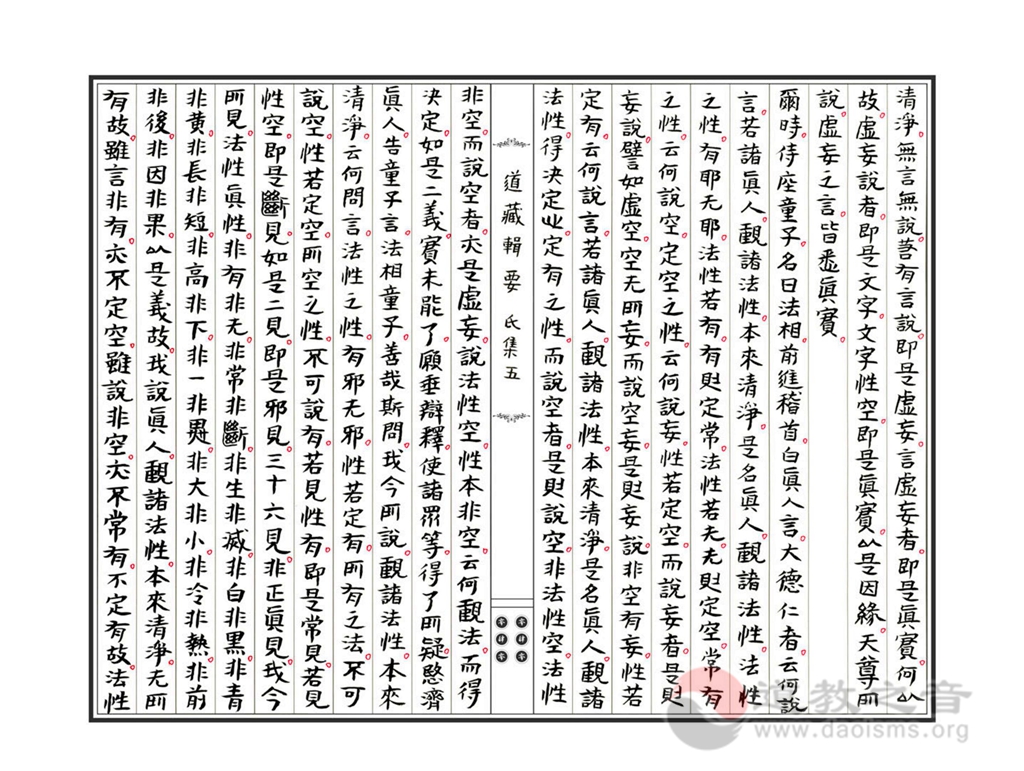 清淨。無言無說。荅有言說。即是虛妄。言虛妄者。即是眞實。何㕥
故。虛妄說者。即是文字。文字性空。即是眞實。㕥是因緣。天尊所
說。虛妄之言。皆悉眞實。
爾時。侍座童子。名曰法相。前進稽首。白眞人言。大德仁者。云何說
言。若諸眞人。觀諸法性。本來清淨。是名眞人。觀諸法性。法性
之性。有耶无耶。法性若有。有則定常。法性若无。无則定空。常有
之性。云何說空。定空之性。云何說妄。性若定空。而說妄者。是則
妄說。譬如虛空。空无所妄。而說空妄。是則妄說。非空有妄。性若
定有。云何說言。若諸眞人。觀諸法性。本來清淨。是名眞人。觀諸
法性。得決定此。定有之性。而說空者。是則說空。非法性空。法性
道藏輯要 氐集五
非空。而說空者。亦是虛妄。說法性空。性本非空。云何觀法。而得
決定。如是二義。實未能了。願垂辯釋。使諸眾等。得了所疑。愍濟
眞人告童子言。法相童子。善哉斯問。我今所說。觀諸法性。本來
清淨。云何問言。法性之性。有邪无邪。性若定有。所有之法。不可
說空。性若定空。所空之性。不可說有。若見性有。即是常見。若見
性空。即是斷見。如是二見。即是邪見。三十六見。非正眞見。我今
所見。法性眞性。非有非无。非常非斷。非生非滅。非白非黑。非青
非黄。非長非短。非高非下。非一非異。非大非小。非冷非熱。非前
非後。非因非果。㕥是義故。我說眞人。觀諸法性。本來清淨。无所
有故。雖言非有。亦不定空。雖說非空。亦不常有。不定有故。法性
道教之音
www.daoisms.org